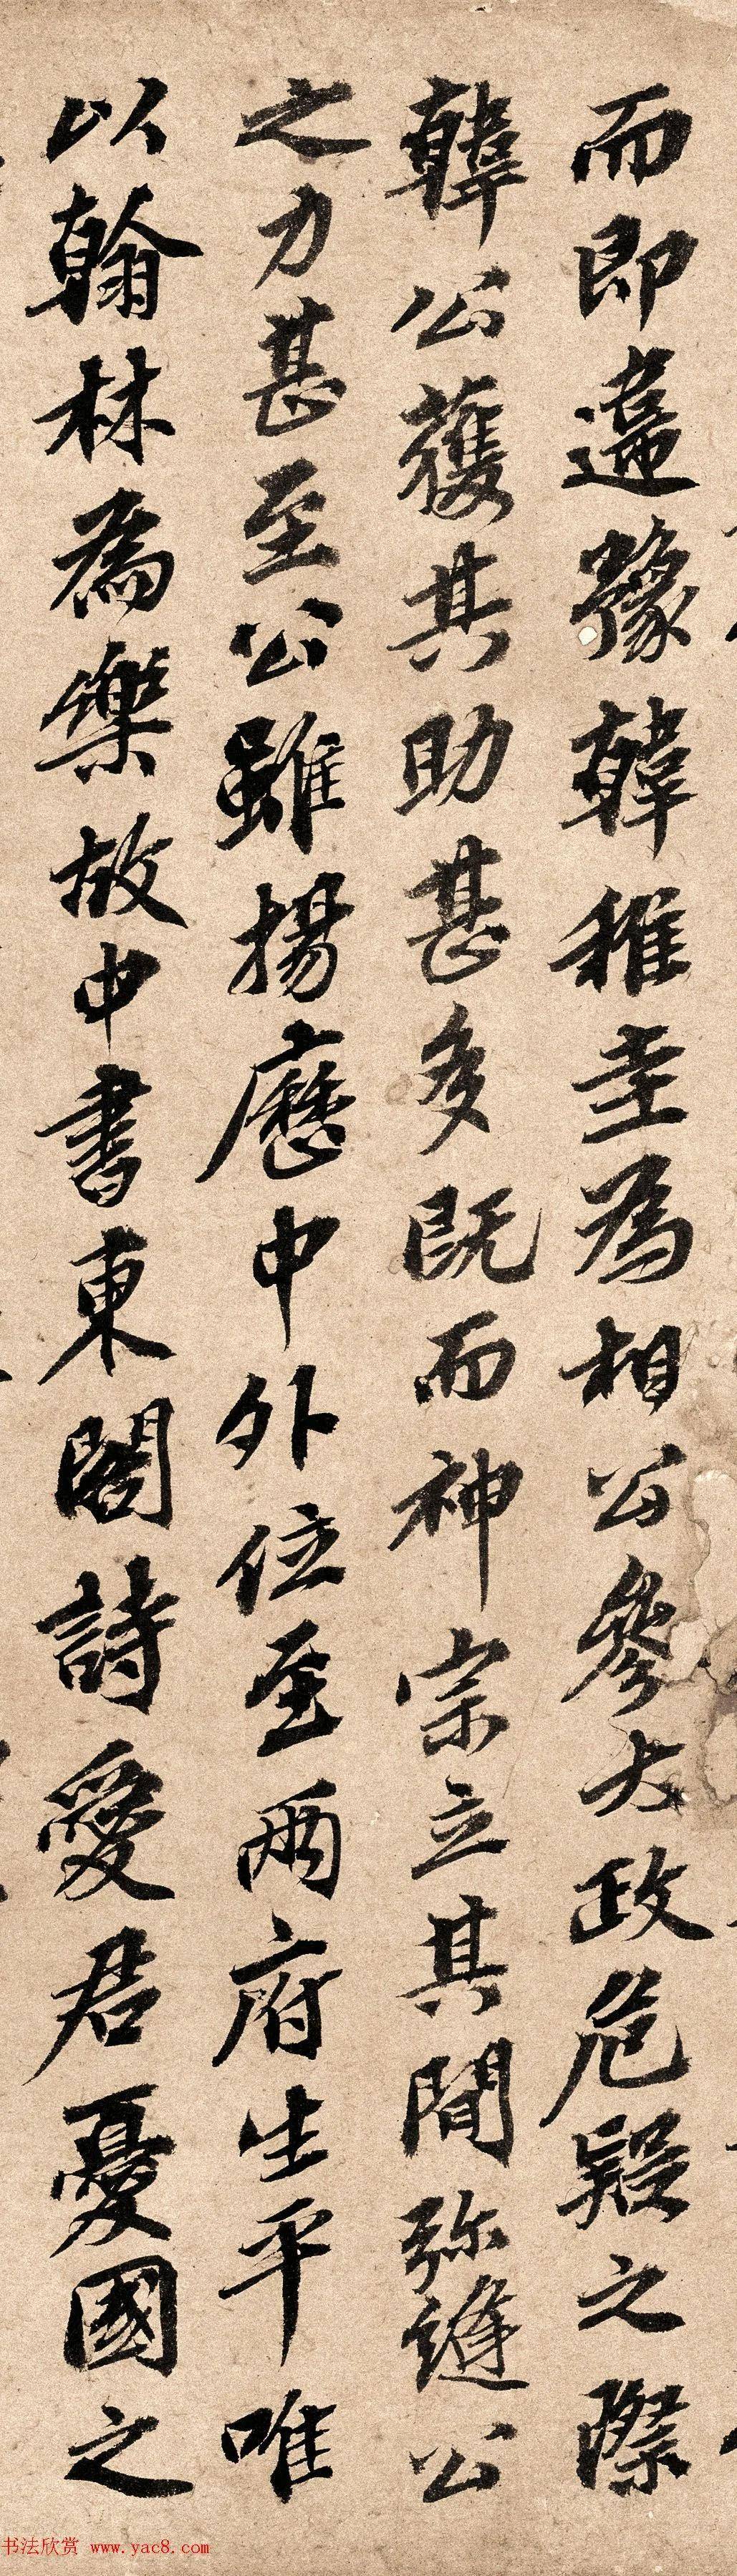 而即違豫韓稚圭為相公參大政危疑之際
韓公獲其助甚多既而神宗立其間弥縫公
之力甚至公雖揚歷中外位至兩府生平唯
以翰林為樂故中書東閣詩愛君憂國之
书法欣赏 www.yac8.com